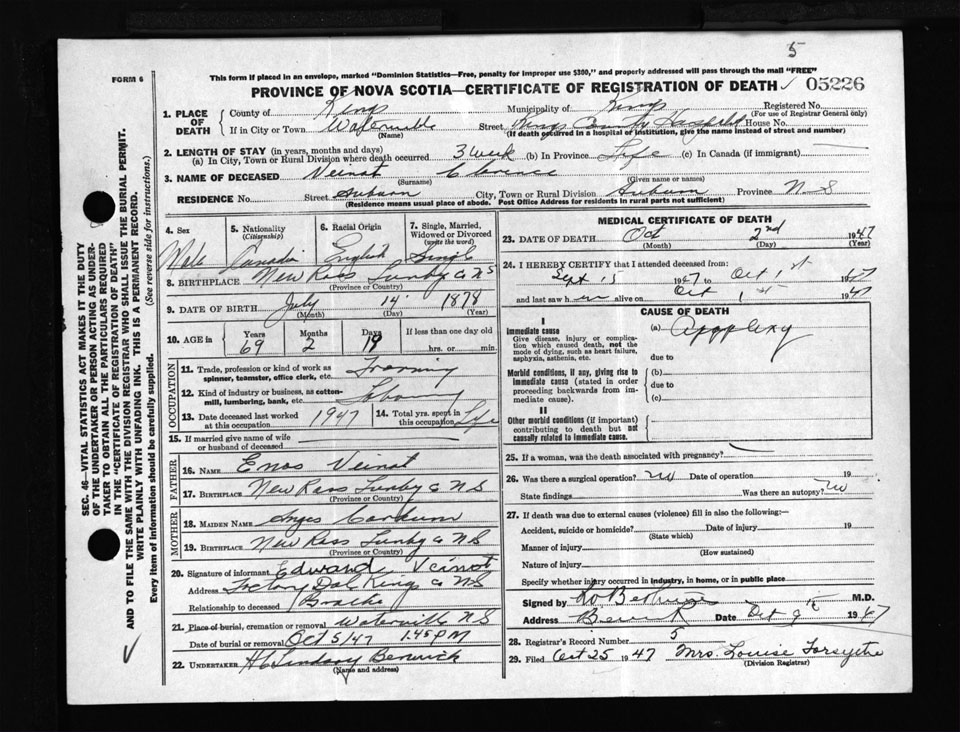 5
FORM 6
This form if placed in an envelope, marked "Dominion Statistics—Free, penalty for improper use $300," and properly addressed will pass through the mail "FREE"
PROVINCE OF NOVA SCOTIA—CERTIFICATE OF REGISTRATION OF DEATH ✓ 05226
1. PLACE OF DEATH
County of Kings Municipality of Kings Registered No.
(For use of Registrar General only)
If in City or Town Waterville Street Kings County Hospital House No.
(Name) (If death occurred in a hospital of institution, give the name instead of street and number)
2. LENGTH OF STAY (in years, months and days)
(a) In City, Town or Rural Division where death occurred 3 week (b) In Province Life (c) In Canada (if immigrant)
3. NAME OF DECEASED Veinot Clarence
(Surname) (Given name or names)
RESIDENCE No. Street Auburn City, Town or Rural Division Auburn Province N S
(Residence means usual place of abode. Post Office Address for residents in rural parts not sufficient)
4. Sex Male
5. Nationality (Citizenship) Canadia
6. Racial Origin English
7. Single, Married, Widowed or Divorced (write the word) Single
8. BIRTHPLACE New Ross Lunbg Co NS
(Province or Country)
9. DATE OF BIRTH July 14 1878
(Month) (Day) (Year)
10. AGE in Years 69 Months 2 Days 19 If less than one day old
hrs. or min.
OCCUPATION
11. Trade, profession or kind of work as spinner, teamster, office clerk, etc. Farming
12. Kind of industry or business, as cotton-mill, lumbering, bank, etc. Laboring
13. Date deceased last worked at this occupation 1947 14. Total yrs. spent in this occupation Life
15. If married give name of wife or husband of deceased
FATHER
16. NAME Enos Veinot
17. BIRTHPLACE New Ross Lunbg Co NS
(Province or Country)
MOTHER
18. MAIDEN NAME
19. BIRTHPLACE New Ross Lunbg Co NS
(Province or Country)
20. Signature of informant Edward Veinot
Address Factory Dale Kings Co NS
Relationship to deceased Brother
21. Place of burial, cremation or removal Waterville NS
Date of burial or removal Oct 5/47 1.45 PM
22. UNDERTAKER H C Lindsay Berwick
(Name and address)
MEDICAL CERTIFICATE OF DEATH
23. DATE OF DEATH Oct 2nd 1947
(Month) (Day) (Year)
24. I HEREBY CERTIFY that I attended deceased from:
Sept 15 1947 to Oct 1st 1947
and last saw h im alive on Oct 1st 1947
CAUSE OF DEATH
I
Immediate cause
Give disease, injury or complication which caused death, not the mode of dying, such as heart failure, asphyxia, asthenia, etc.
(a) Apoplexy
due to
Morbid conditions, if any, giving rise to immediate cause (stated in order proceeding backwards from immediate cause).
(b)
due to
(c)
II
Other morbid conditions (if important) contributing to death but not causally related to immediate cause.
25. If a woman, was the death associated with pregnancy?
26. Was there a surgical operation? no Date of operation 19
State findings Was there an autopsy? no
27. If death was due to external causes (violence) fill in also the following:—
Accident, suicide or homicide? Date of injury 19
(State which)
Manner of injury
(How sustained)
Nature of injury
Specify whether injury occurred in industry, in home, or in public place
Signed by M.D.
Address Berwick Date Oct 9th 1947
28. Registrar's Record Number 5
29. Filed Oct 25 1947 Mrs. Louise Forsythe
(Division Registrar)
SEC. 46—VITAL STATISTICS ACT MAKES IT THE DUTY
OF THE UNDERTAKER OR PERSON ACTING AS UNDER-
TAKER TO OBTAIN ALL THE PARTICULARS REQUIRED
IN THE "CERTIFICATE OF REGISTRATION OF DEATH"
AND TO FILE THE SAME WITH THE DIVISION REGISTRAR WHO SHALL ISSUE THE BURIAL PERMIT.
WRITE PLAINLY WITH UNFADING INK. THIS IS A PERMANENT RECORD.
Every item of information should be carefully supplied. (See reverse side for instructions.)